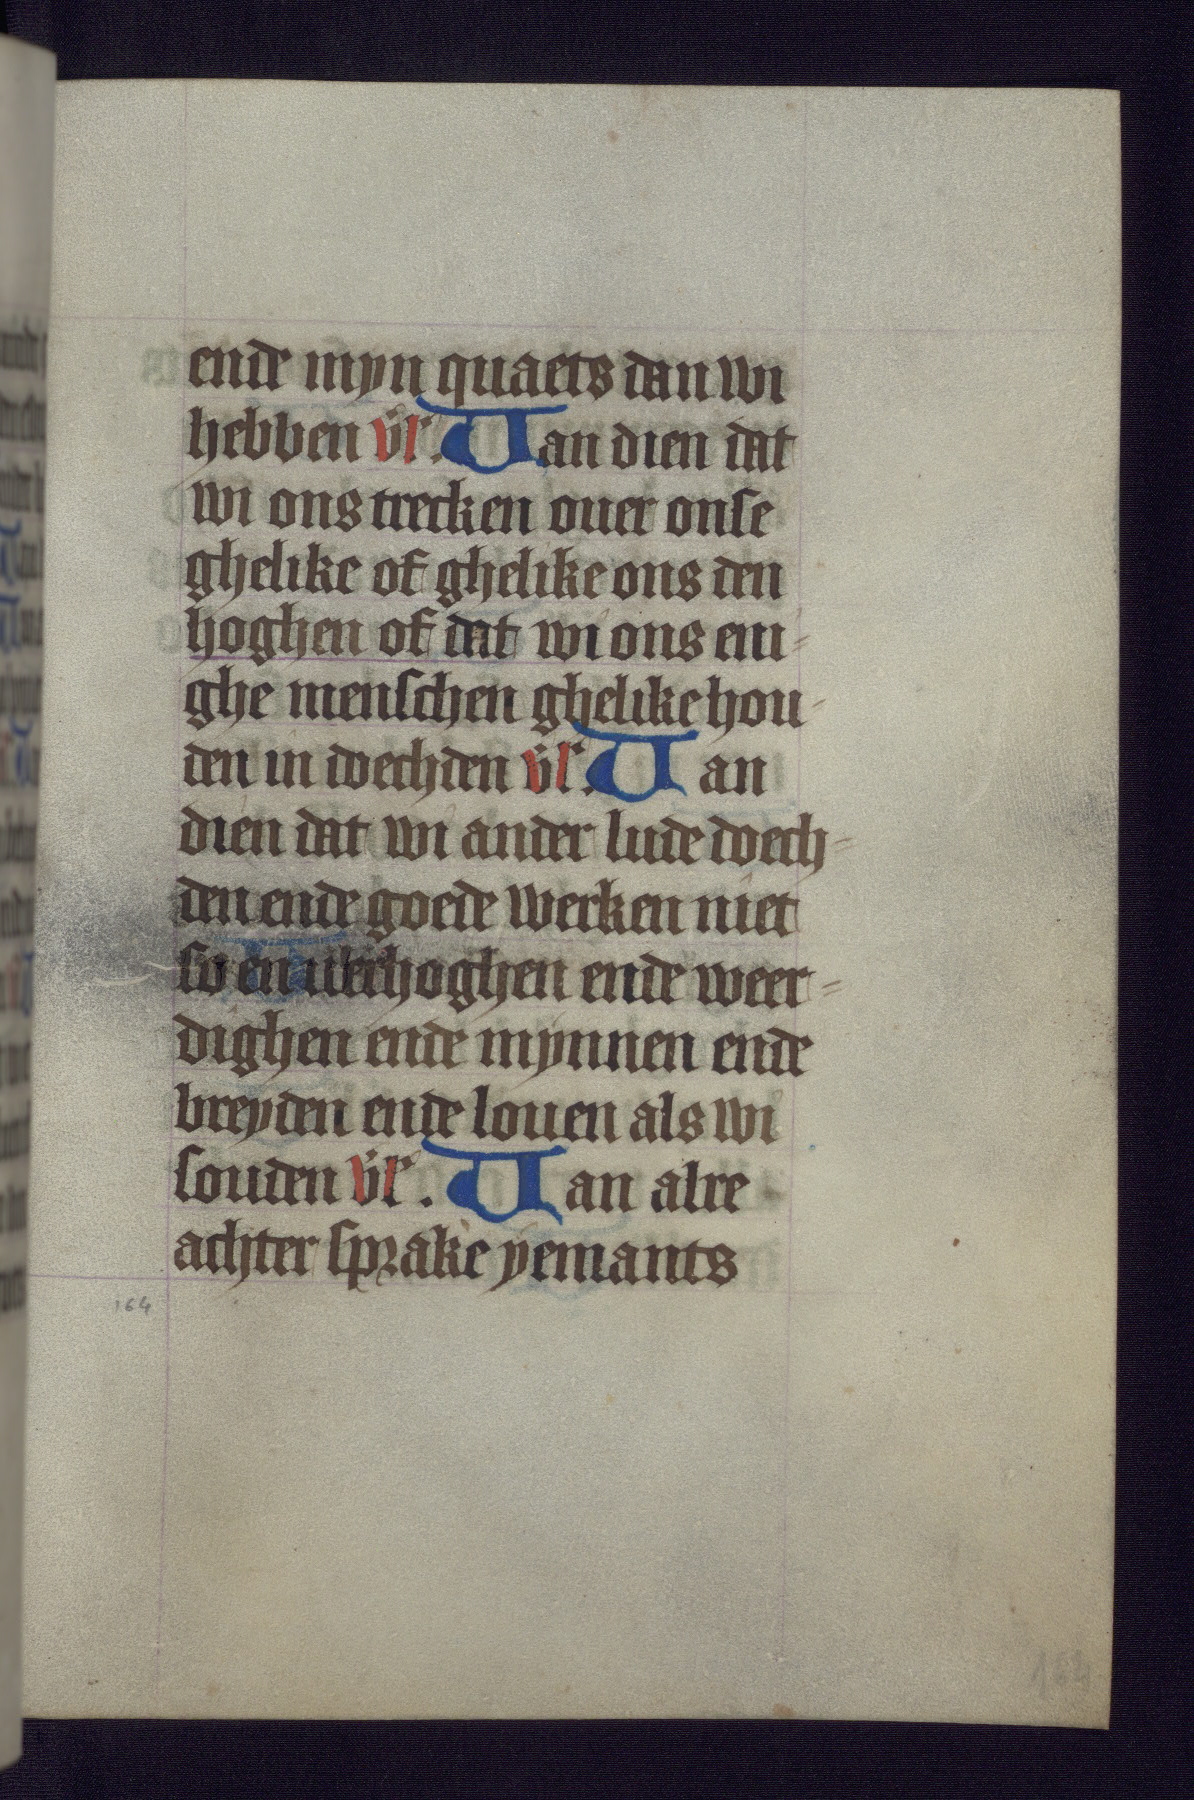 ende myn quaets dan wi
hebben vl̄. Van dien dat
wi ons trecken ouer onse
ghelike of ghelike ons den
hoghen of dat wi ons eni-
ghe menschen ghelike hou-
den in doechden vl̄. Van
dien dat wi ander lude doech-
den ende goede werken niet
so en uerhoghen ende weer-
dighen ende mynnen ende
breyden ende louen als wi
souden vl̄. Van alre
achter sprake yemants
164
164